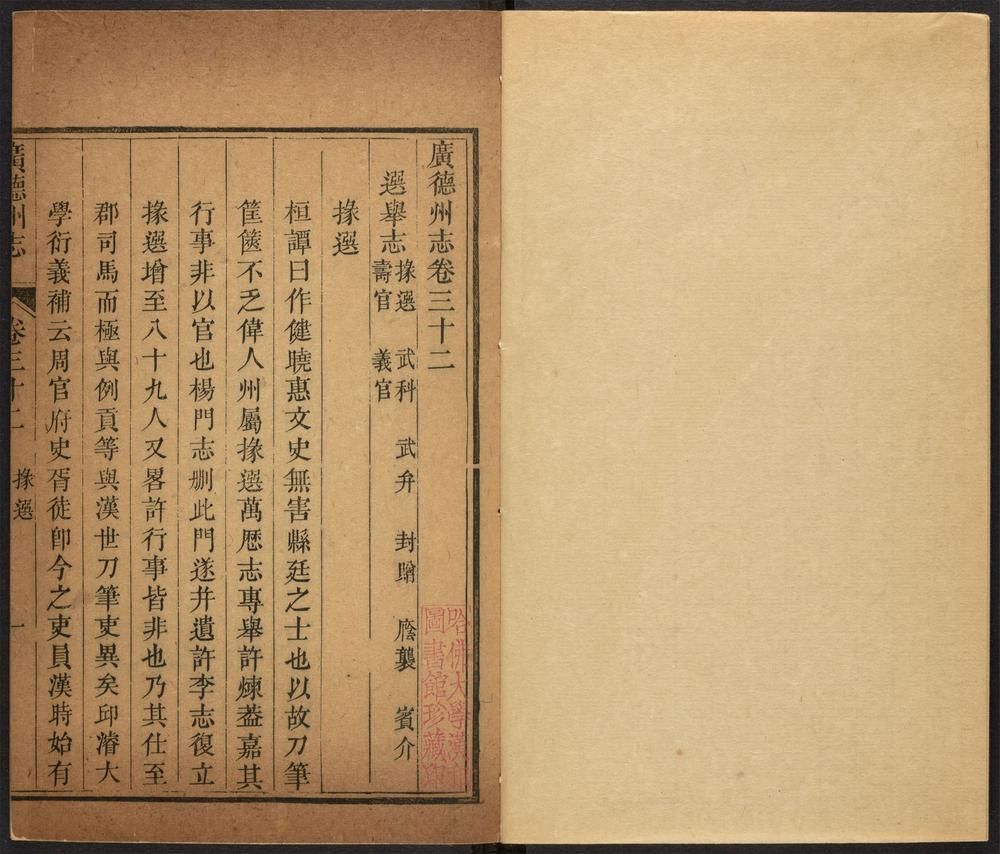 廣德州志卷三十二
選舉志 掾選 武科 武弁 封贈 廕襲 賓介
壽官 義官
掾選
桓譚曰作健曉惠文史無害縣廷之士也以故刀筆
筐篋不乏偉人州屬掾選萬厯志專舉許煉葢嘉其
行事非以官也楊門志刪此門遂并遺許李志復立
掾選增至八十九人又畧許行事皆非也乃其仕至
郡司馬而極與例貢等與漢世刀筆吏異矣邱濬大
學衍義補云周官府史胥徒卽今之吏員漢時始有
廣德州志 卷三十二 掾選 一
哈佛大學漢和
圖書館珍藏印